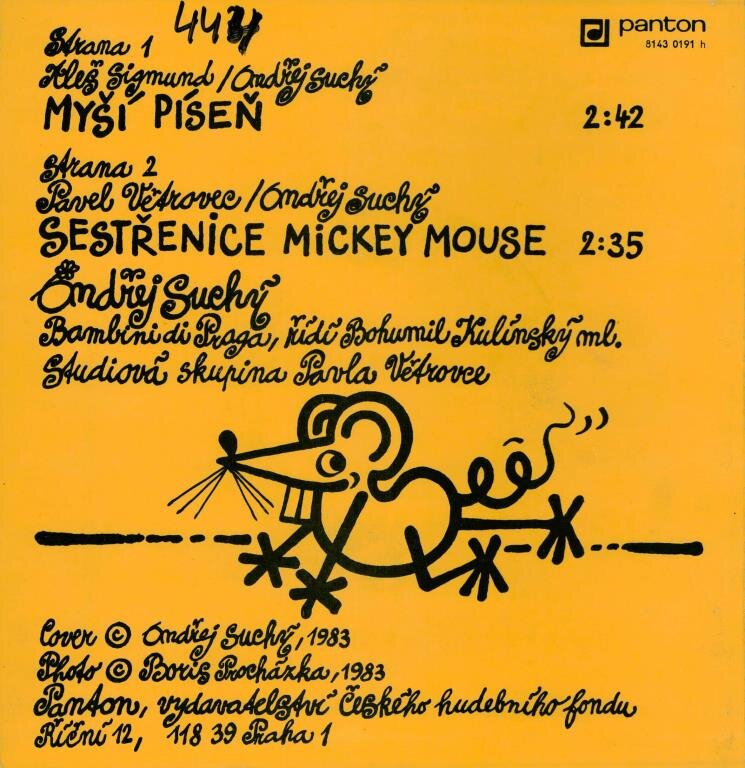 444
panton
8143 0191 h
Strana 1
Aleš Sigmund / Ondřej Suchý
MYŠÍ PÍSEŇ 2:42
Strana 2
Pavel Větrovec / Ondřej Suchý
SESTŘENICE MICKEY MOUSE 2:35
Ondřej Suchý
Bambini di Praga, řídí Bohumil Kulínský ml.
Studiová skupina Pavla Větrovce
Cover © Ondřej Suchý, 1983
Photo © Boris Procházka, 1983
Panton, vydavatelství Českého hudebního fondu
Říční 12, 118 39 Praha 1